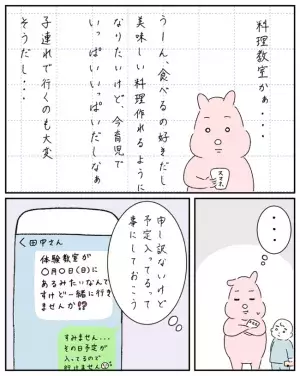 料理教室かぁ・・・
うーん、食べるの好きだし
美味しい料理作れるように
なりたいけど、今育児で
いっぱいいっぱいだしなぁ
子連れで行くのも大変
そうだし・・・
スマホ
・・・
申し訳ないけど
予定入ってるって
事にしておこう
＜田中さん
体験教室が
〇月〇日(日)に
あるみたいなんで
すけど一緒に行き
ませんか⁇
すみません・・・
その日予定が
入ってるので
行けません